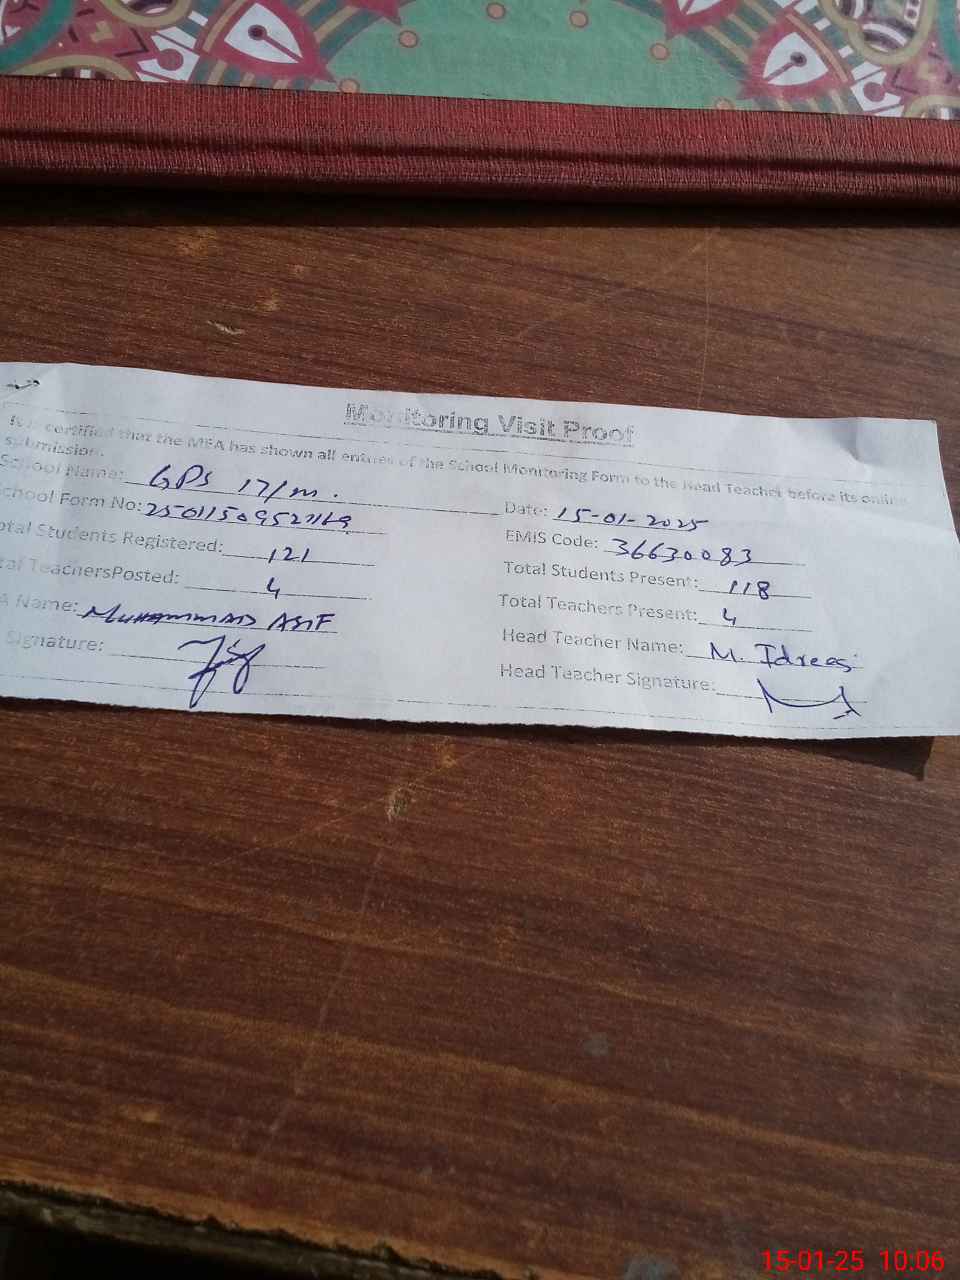 Monitoring Visit Proof
certified that the MEA has shown all entries of the School Monitoring Form to the Head Teacher before its online
submission.
School Name: GPS 17/m.
Date: 15-01-2025
chool Form No:
EMIS Code: 36630083
otal Students Registered: 121
Total Students Present: 118
tal TeachersPosted: 4
Total Teachers Present: 4
A Name: MUHAMMAD ASIF
Head Teacher Name: M. Idrees
Signature:
Head Teacher Signature:
15-01-25 10:06